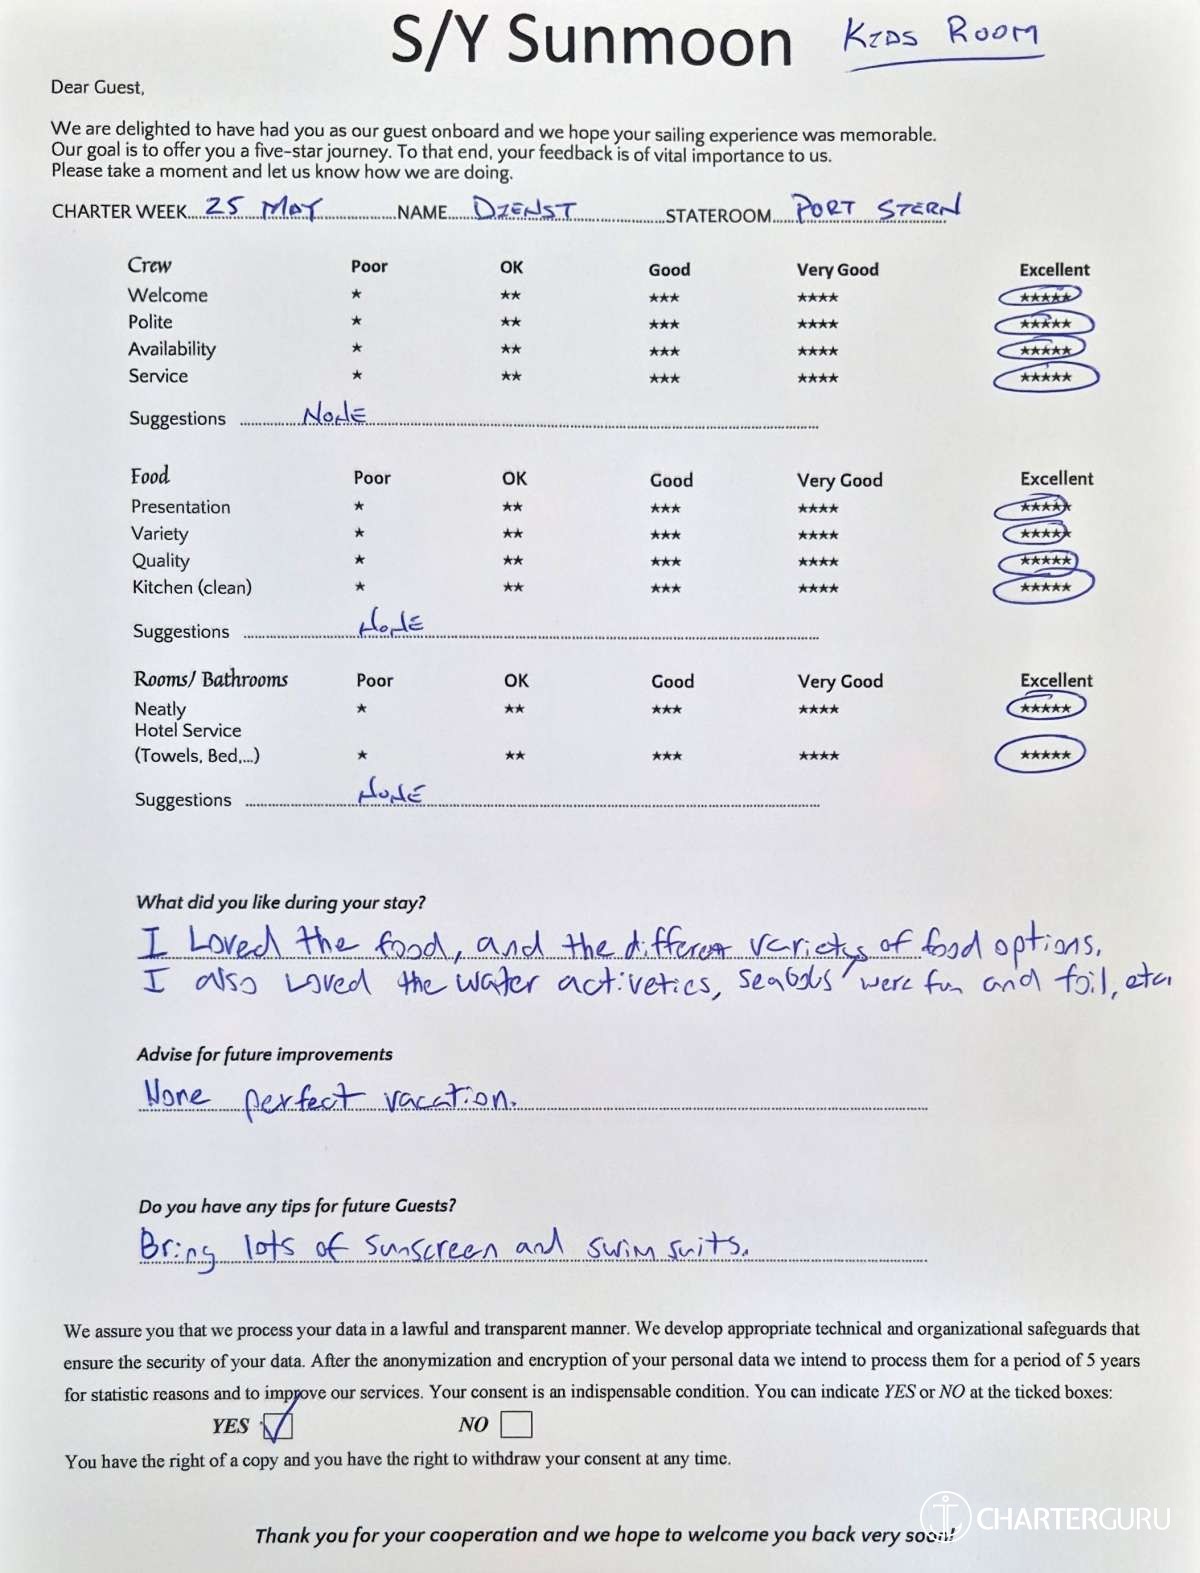 S/Y Sunmoon KIDS ROOM
Dear Guest,
We are delighted to have had you as our guest onboard and we hope your sailing experience was memorable.
Our goal is to offer you a five-star journey. To that end, your feedback is of vital importance to us.
Please take a moment and let us know how we are doing.
CHARTER WEEK.... 25 MAY ....NAME.... DIENST ....STATEROOM.... PORT STERN
Crew Poor OK Good Very Good Excellent
Welcome ★ ★★ ★★★ ★★★★ ★★★★★
Polite ★ ★★ ★★★ ★★★★ ★★★★★
Availability ★ ★★ ★★★ ★★★★ ★★★★★
Service ★ ★★ ★★★ ★★★★ ★★★★★
Suggestions .... NONE ....
Food Poor OK Good Very Good Excellent
Presentation ★ ★★ ★★★ ★★★★ ★★★★★
Variety ★ ★★ ★★★ ★★★★ ★★★★★
Quality ★ ★★ ★★★ ★★★★ ★★★★★
Kitchen (clean) ★ ★★ ★★★ ★★★★ ★★★★★
Suggestions .... NONE ....
Rooms/ Bathrooms Poor OK Good Very Good Excellent
Neatly ★ ★★ ★★★ ★★★★ ★★★★★
Hotel Service
(Towels, Bed,...) ★ ★★ ★★★ ★★★★ ★★★★★
Suggestions .... NONE ....
What did you like during your stay?
I Loved the food, and the different varietys of food options.
I also Loved the water activetics, seabobs were fun and foil, etc.
Advise for future improvements
None perfect vacation.
Do you have any tips for future Guests?
Bring lots of sunscreen and swim suits.
We assure you that we process your data in a lawful and transparent manner. We develop appropriate technical and organizational safeguards that
ensure the security of your data. After the anonymization and encryption of your personal data we intend to process them for a period of 5 years
for statistic reasons and to improve our services. Your consent is an indispensable condition. You can indicate YES or NO at the ticked boxes:
YES ☑ NO ☐
You have the right of a copy and you have the right to withdraw your consent at any time.
CHARTERGURU
Thank you for your cooperation and we hope to welcome you back very soon!